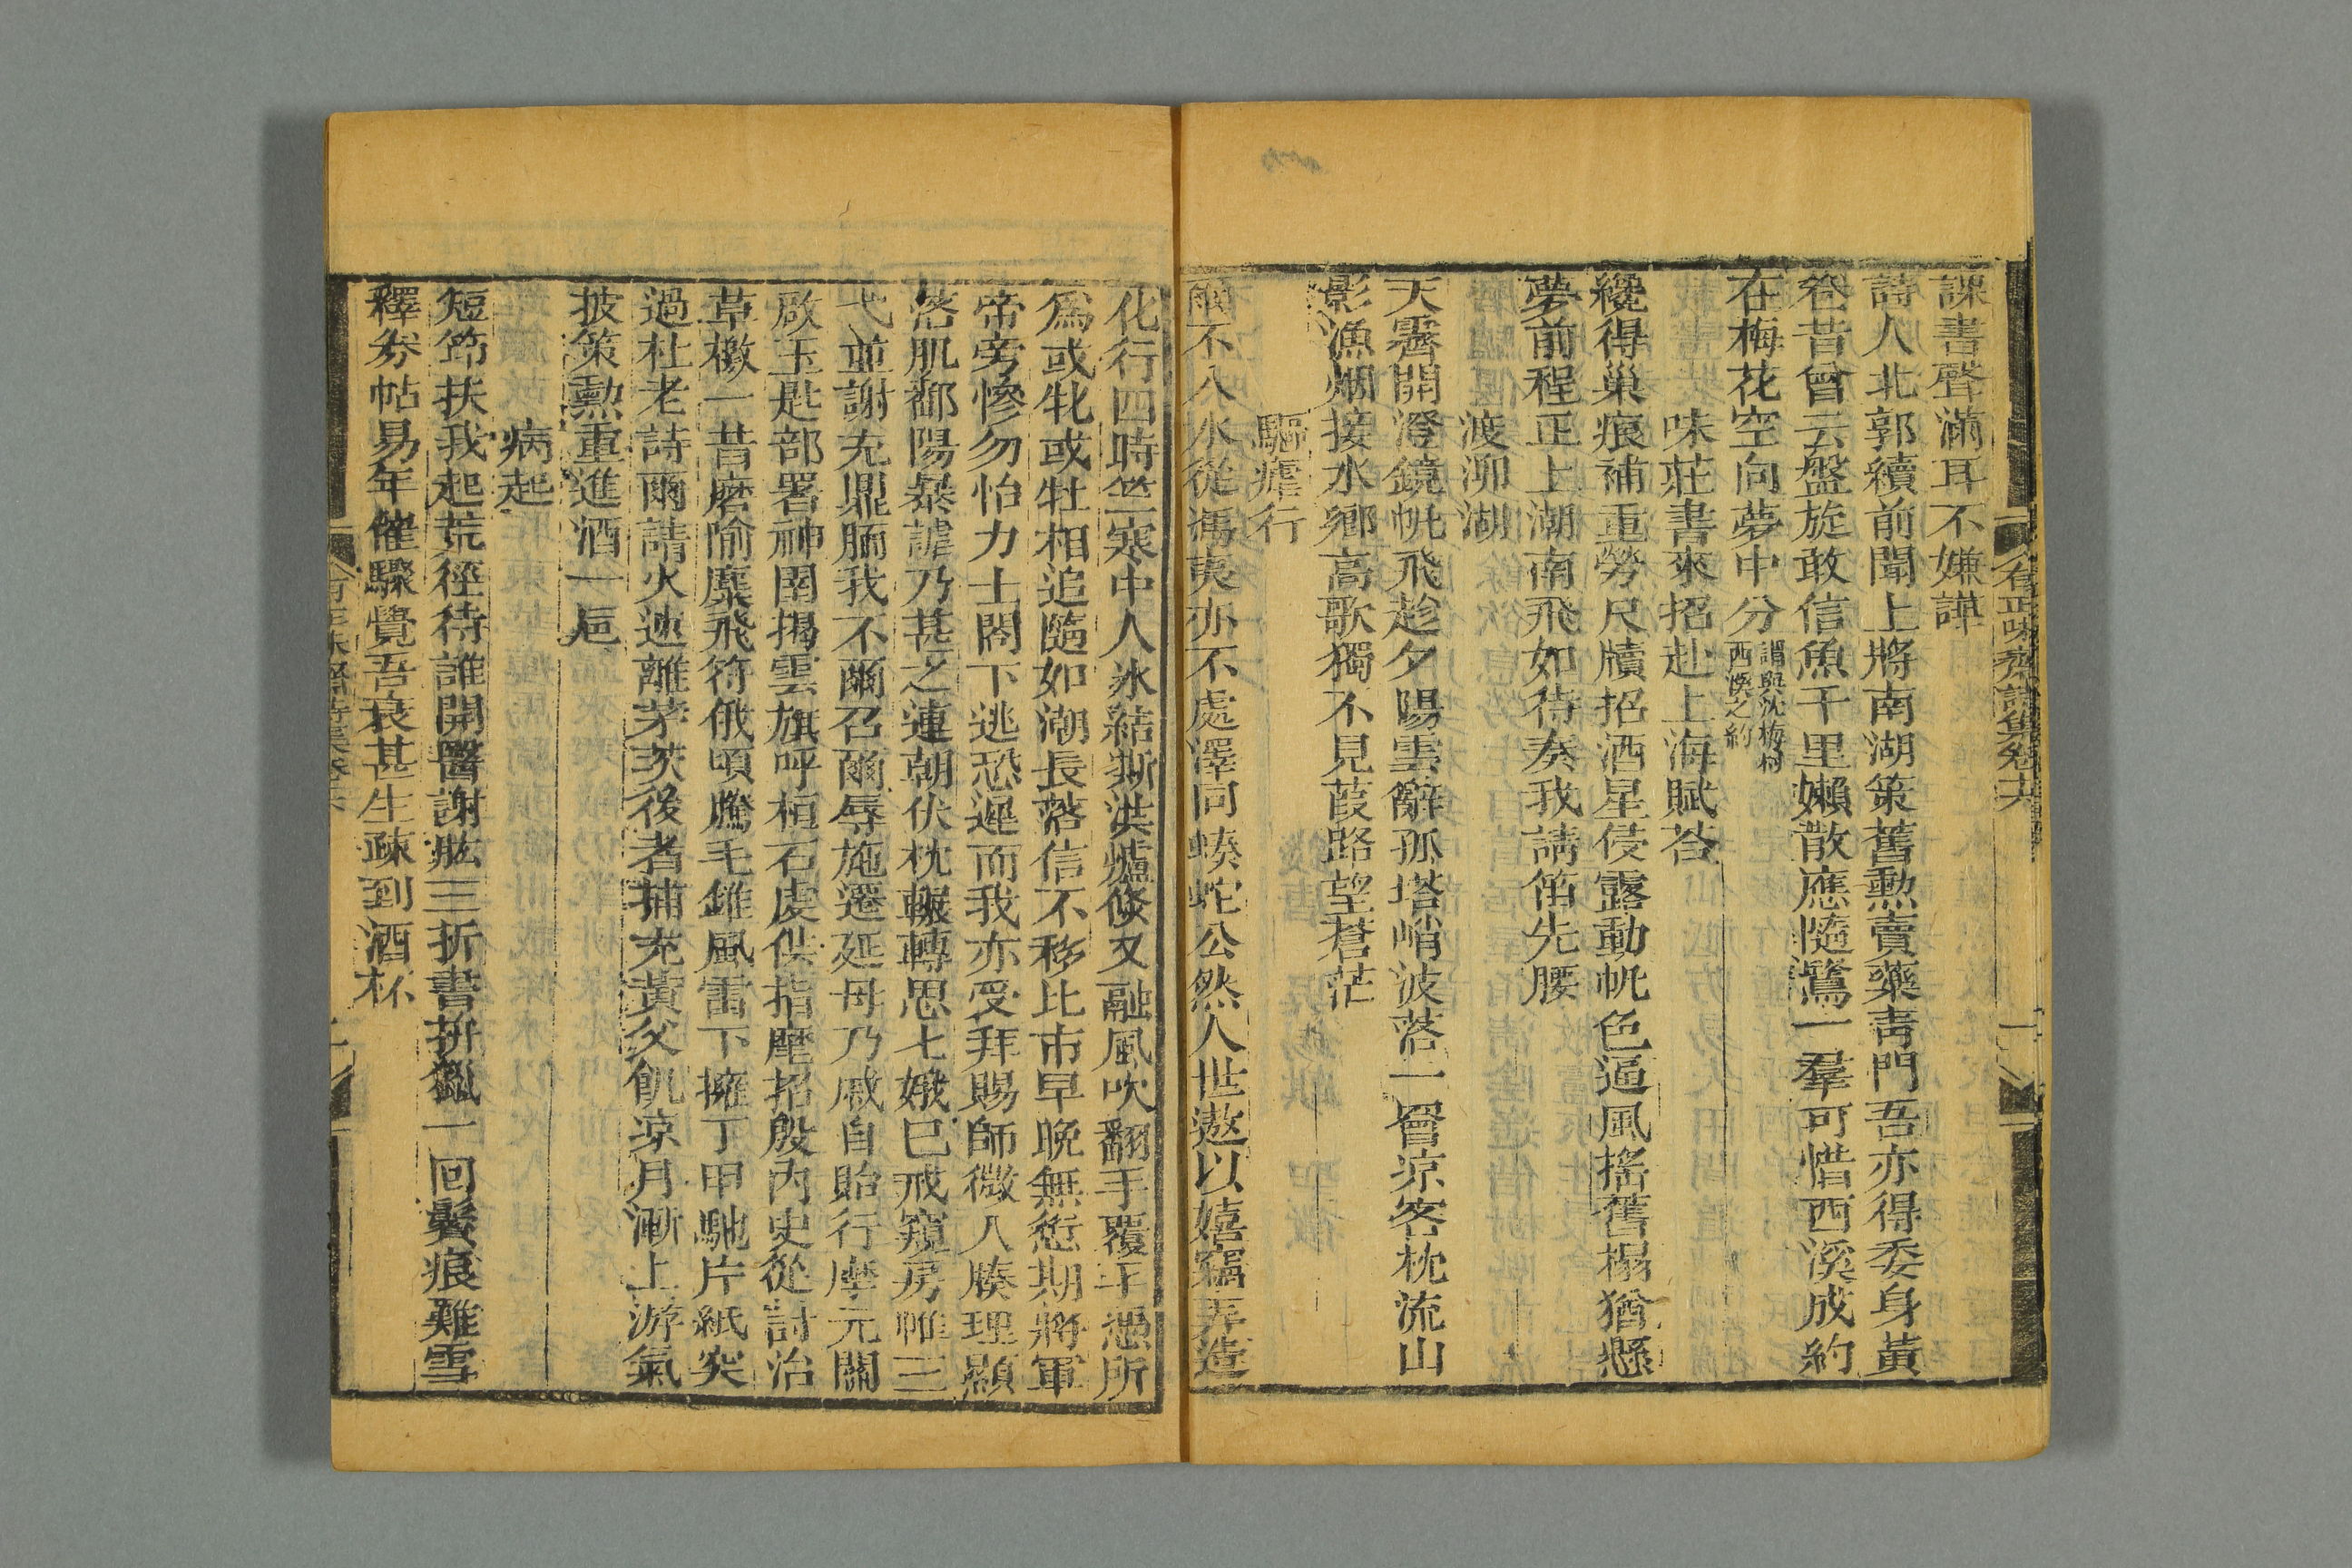 有正味齋詩集卷十六
課書聲滿耳不嫌譁
詩人北郭續前聞上將南湖策舊勲賣藥靑門吾亦得委身黃
卷昔曾云盤旋敢信魚千里嬾散應隨鷺一羣可惜西溪成約
在梅花空向夢中分謂與沈梅村西溪之約
味莊書來招赴上海賦荅
纔得巢痕補重勞尺牘招酒星侵露動帆色逼風搖舊榻猶懸
夢前程正上潮南飛如待奏我請笛先腰
渡泖湖
天霽開澄鏡帆飛趁夕陽雲辭孤塔峭波落一罾凉客枕流山
影漁烟接水鄉高歌獨不見葭路望蒼茫
驅瘧行
爾不入水從馮夷亦不處澤同螓蛇公然人世遨以嬉竊弄造
化行四時竺寒中人氷結澌洪爐倐又融風吹翻手覆手憑所
爲或牝或牡相追隨如潮長落信不移比市早晩無愆期將軍
帝旁慘勿怡力士閣下逃恐遲而我亦受拜賜師微入腠理顯
啓肌鄱陽暴謔乃甚之連朝伏枕輾轉思七娥已戒窺房帷三
弋並謝充鼎胹我不爾召爾辱施遷延毋乃戚自貽行麾元關
啟玉匙部署神圉揭雲旗呼桓石虔供指麾招殷內史從討治
草檄一昔磨隃麋飛符俄頃騰毛錐風雷下擁丁甲馳片紙突
過杜老詩爾請火速離茅茨後者捕充黃父飢凉月漸上游氣
披策勲重進酒一巵
病起
短笻扶我起荒徑待誰開醫謝肱三折書拚獺一回鬢痕難雪
釋券帖易年催驟覺吾衰甚生疎到酒杯